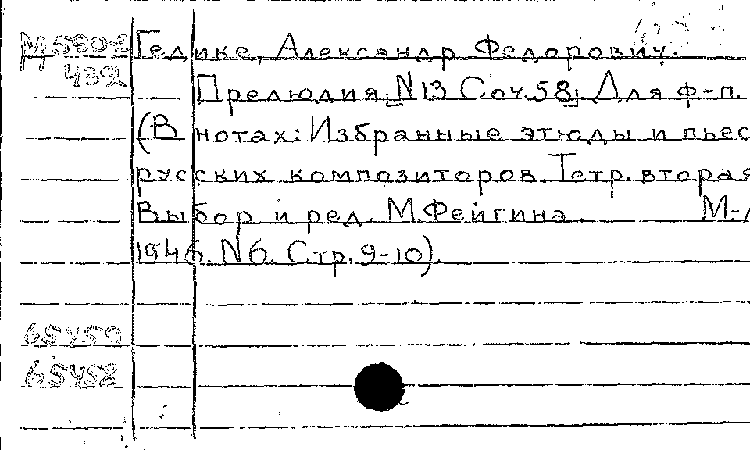 Гедике, Александр Федорович.
432
Прелюдия, N13 Соч.58, Для ф-п.
(В нотах: Избранные этюды и пьес
русских композиторов. Тетр. вторая
Выбор и ред. М.Фейгина. М-Л
1946. N6. Стр.9-10).
65459
65458